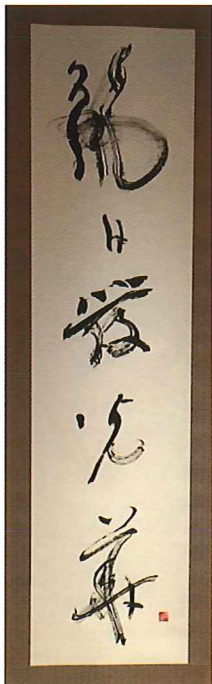 麗日發光華